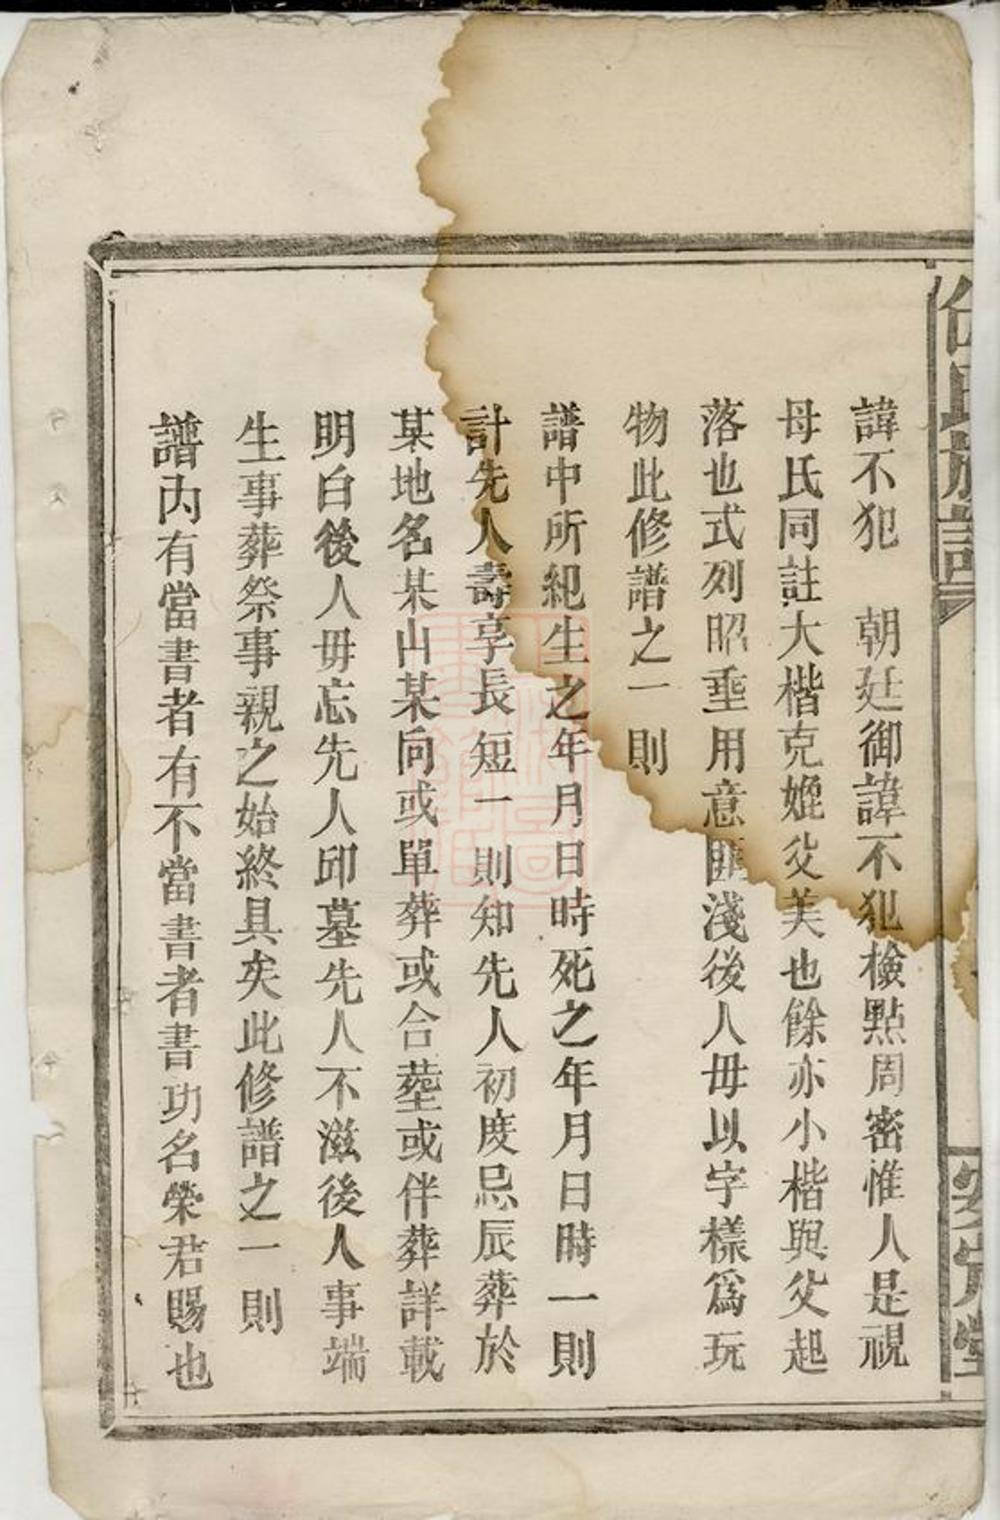 諱不犯　朝廷御諱不犯檢點周密惟人是視
母氏同註大楷克媲父美也餘亦小楷與父起
落也式列昭垂用意匪淺後人毋以字樣爲玩
物此修譜之一則
譜中所紀生之年月日時死之年月日時一則
計先人壽享長短一則知先人初度忌辰葬於
某地名某山某向或單葬或合塟或伴葬詳載
明白後人毋忘先人邱墓先人不滋後人事端
生事葬祭事親之始終具矣此修譜之一則
譜內有當書者有不當書者書功名榮君賜也
氏族譜
安定堂